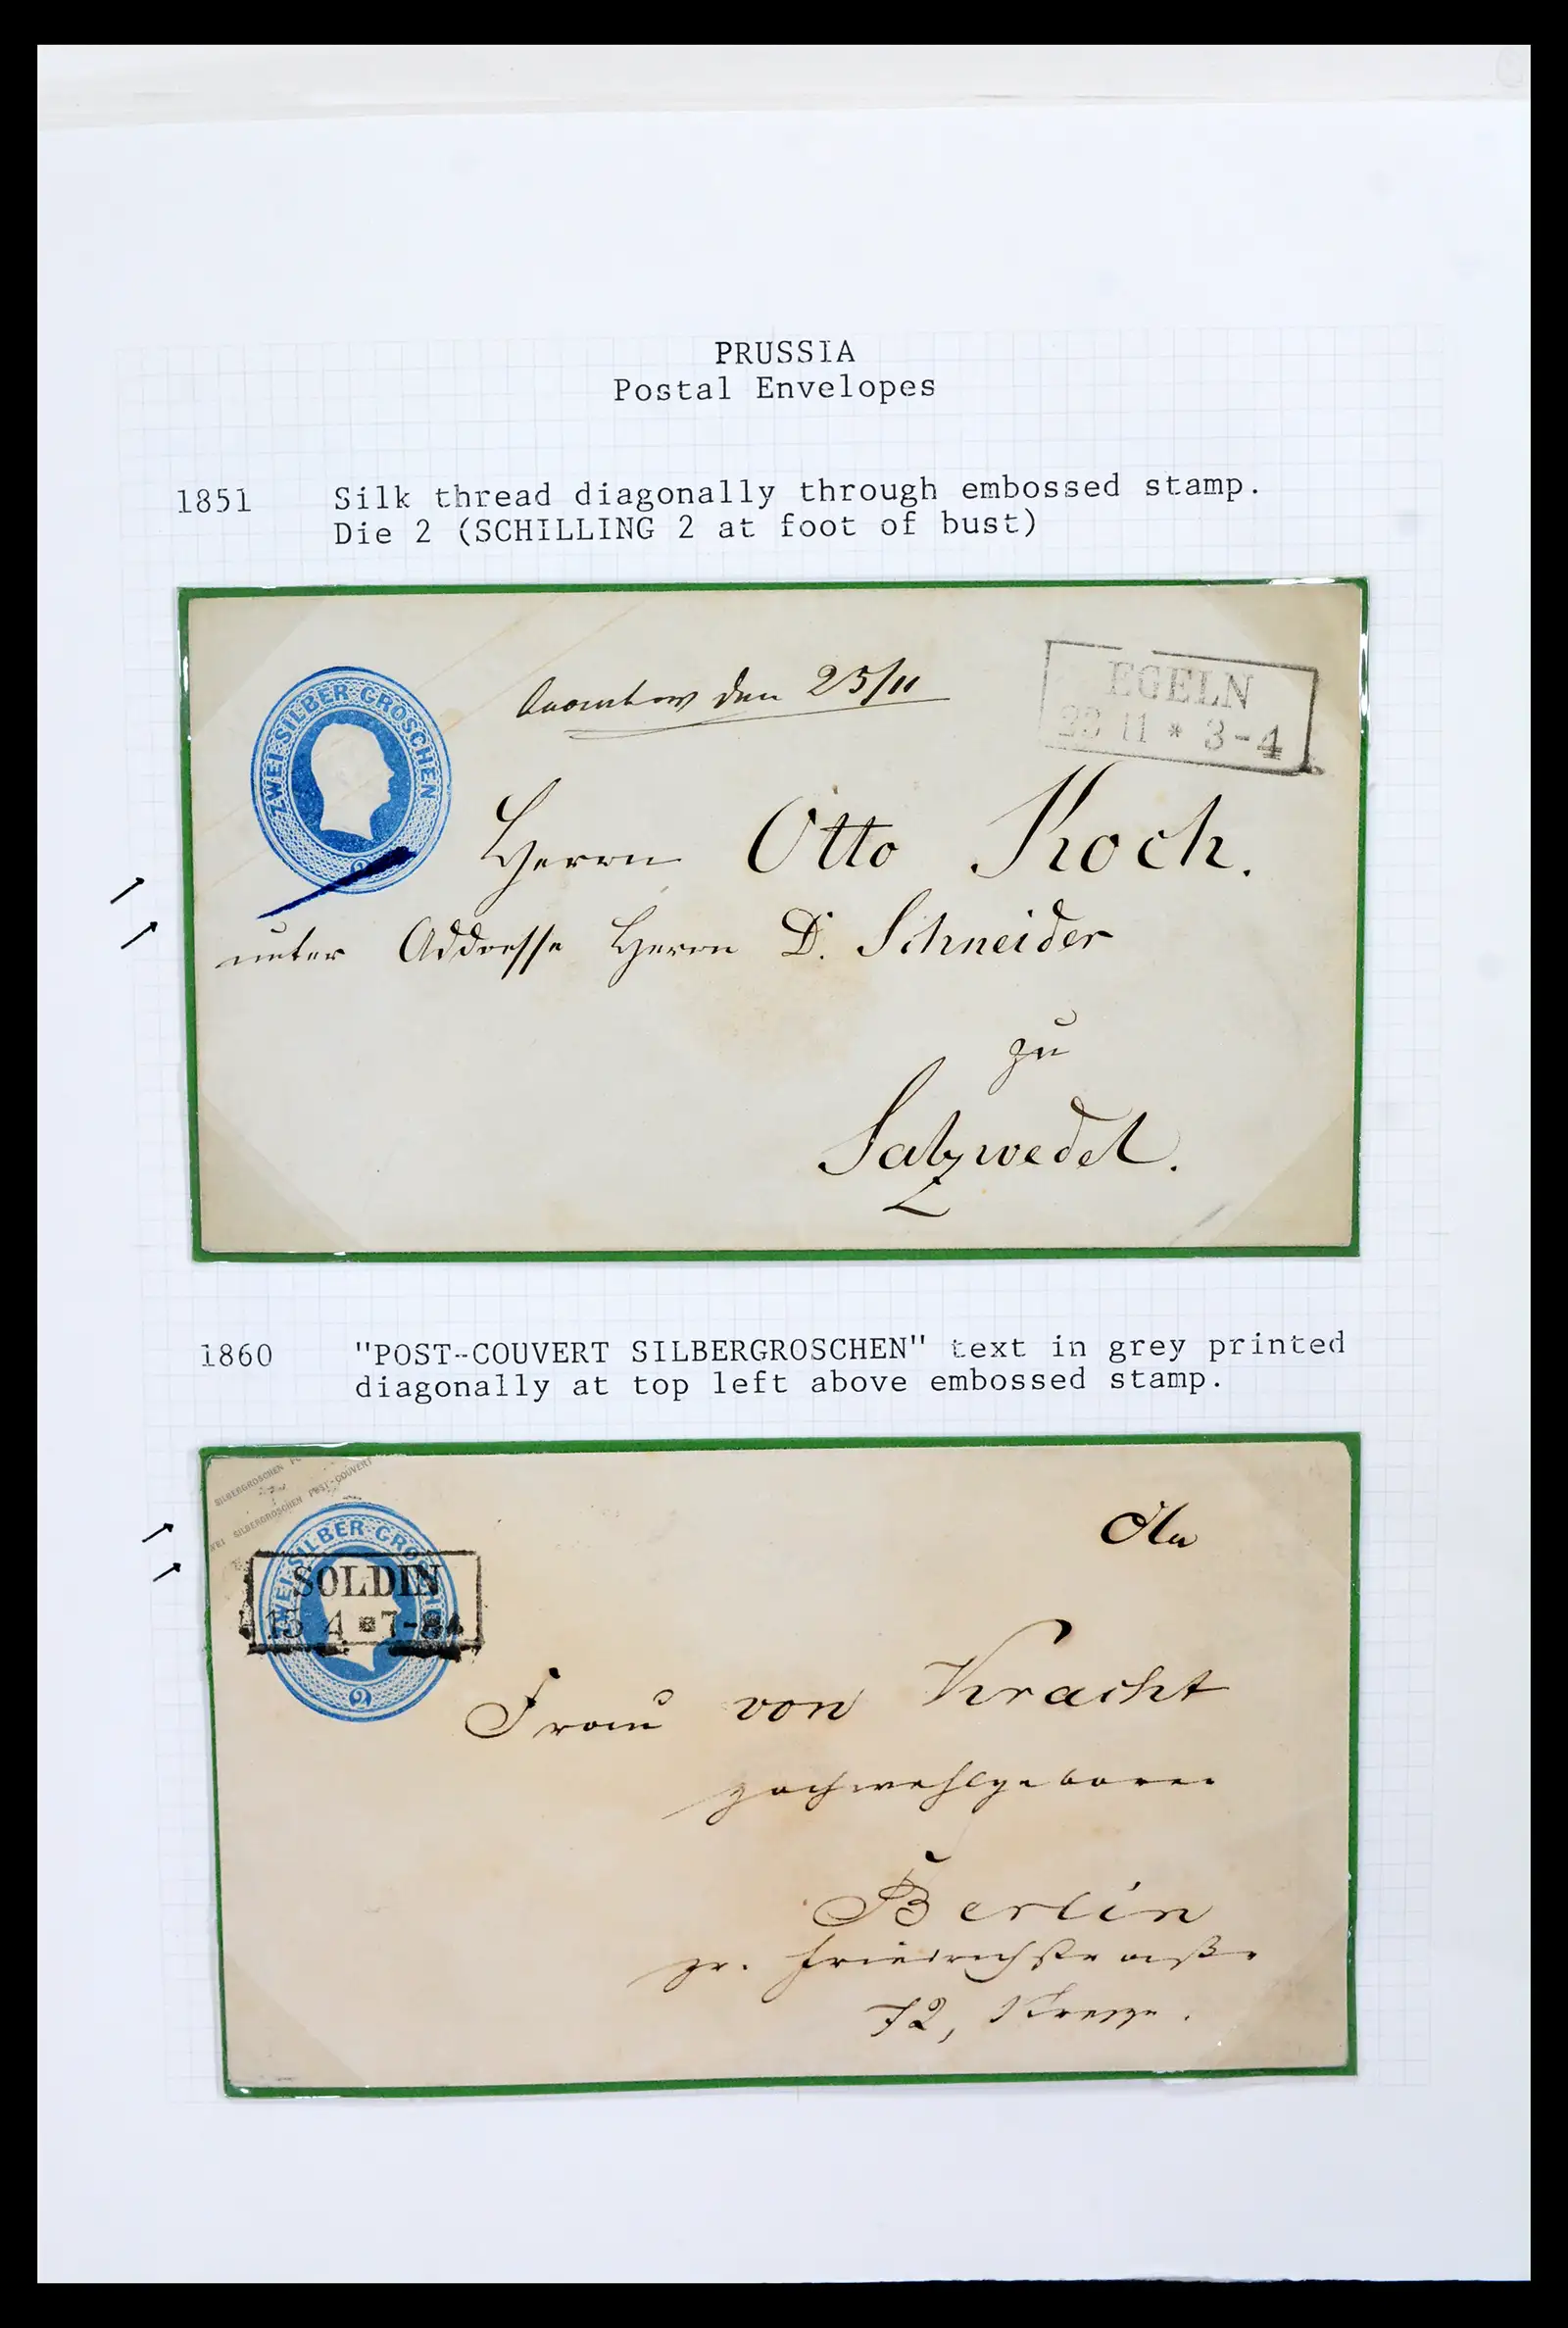 PRUSSIA
Postal Envelopes
1851 Silk thread diagonally through embossed stamp.
Die 2 (SCHILLING 2 at foot of bust)
ZWEI SILBER GROSCHEN
2
den 25/11
EGELN
23 11 * 3-4
Herrn Otto Koch.
unter Addresse Herrn D. Schneider
zu
Salzwedel.
1860 "POST-COUVERT SILBERGROSCHEN" text in grey printed
diagonally at top left above embossed stamp.
SILBERGROSCHEN PO
ZWEI SILBERGROSCHEN POST-COUVERT
ZWEI SILBER GROSCHEN
2
SOLDIN
15 4 * 7-8
Frau von Kracht
Hochwohlgeboren
Berlin
gr. Friedrichstraße
72,